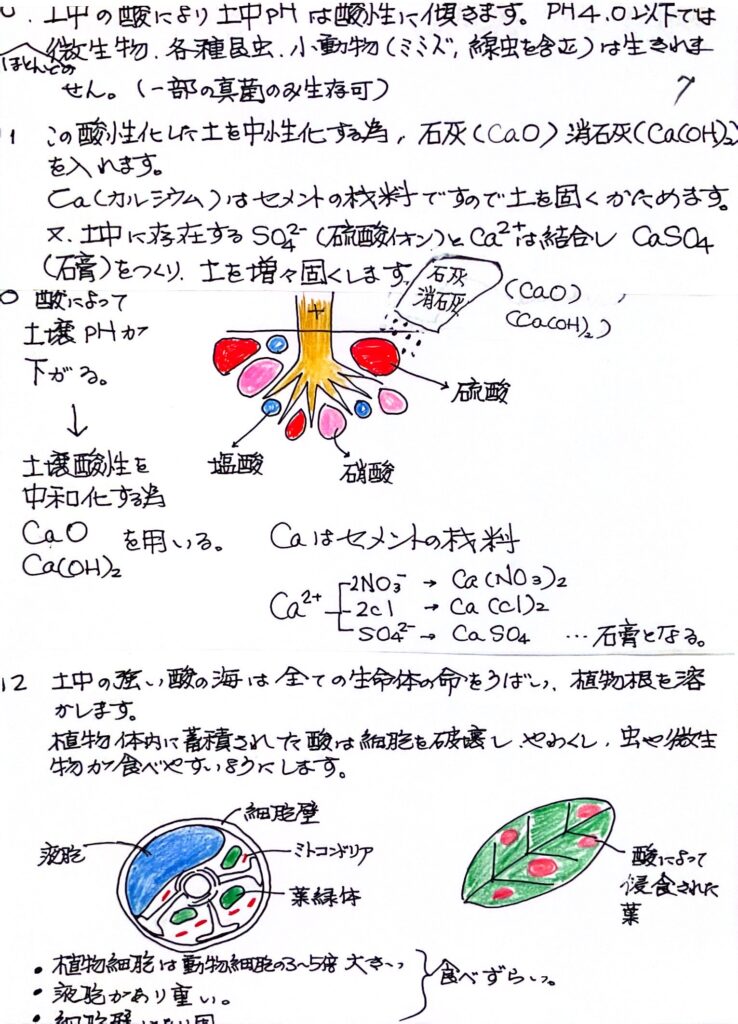 土中の酸により土中pHは酸性に傾きます。PH4.0以下では
ほとんどの
微生物、各種昆虫、小動物(ミミズ、線虫を含立)は生きれま
せん。(一部の真菌のみ生存可)
7
11 この酸性化した土を中性化する為、石灰(CaO)消石灰(Ca(OH)₂)
を入れます。
Ca(カルシウム)はセメントの材料ですので土を固くかためます。
又、土中に存在するSO₄²⁻(硫酸イオン)とCa²⁺は結合し CaSO₄
(石膏)をつくり、土を増々固くします。
石灰
消石灰
(CaO)
(Ca(OH)₂)
酸によって
土壌PHが
下がる。
↓
土壌酸性を
中和化する為
CaO
Ca(OH)₂
を用いる。
硫酸
塩酸
硝酸
Caはセメントの材料
Ca²⁺
2NO₃⁻ → Ca(NO₃)₂
2cl → Ca(cl)₂
SO₄²⁻ → CaSO₄ …石膏となる。
12 土中の強い酸の海は全ての生命体の命をうばい、植物根を溶
かします。
植物体内に蓄積された酸は細胞を破壊し、やわくし、虫や微生
物が食べやすいようにします。
細胞壁
液胞
ミトコンドリア
葉緑体
酸によって
浸食された
葉
・植物細胞は動物細胞の3〜5倍 大きい
・液胞があり重い。
食べずらい。
・細胞壁